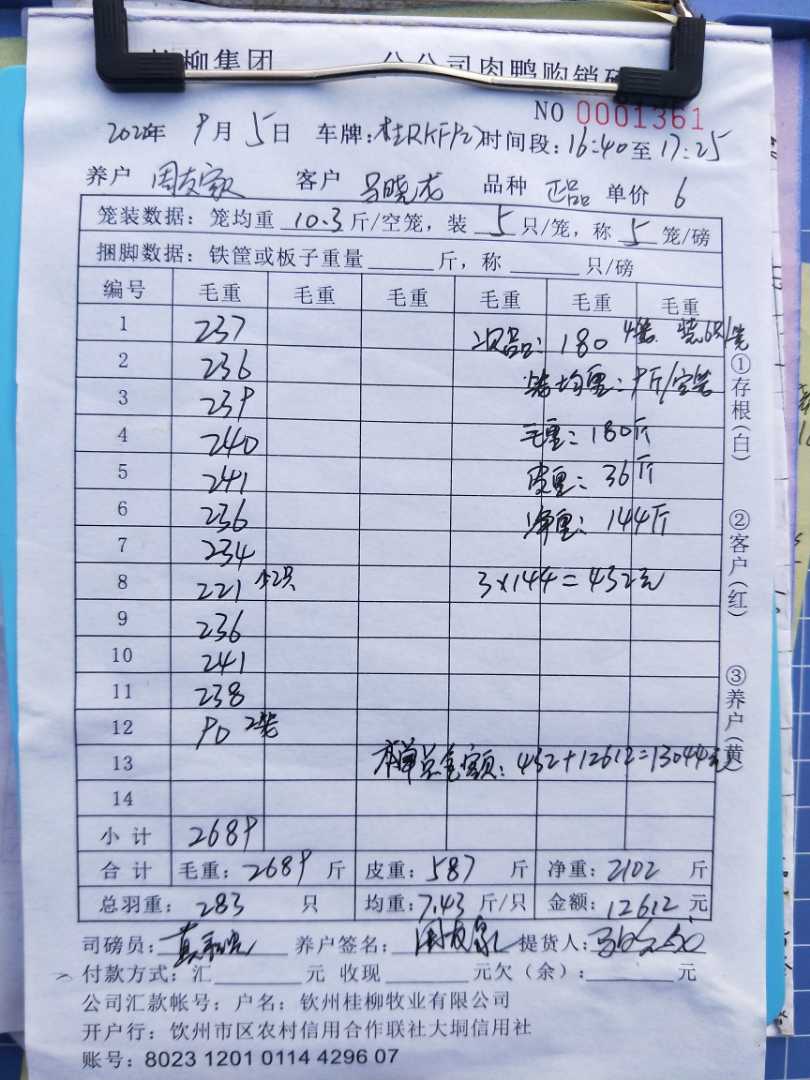 柳集团 公司肉鸭购销
NO 0001361
9月5日 车牌: 时间段:16:40至17:25
养户 周友家 客户 吕晓龙 品种 正品 单价 6
笼装数据:笼均重 10.3 斤/空笼,装 5 只/笼,称 5 笼/磅
捆脚数据:铁筐或板子重量 斤,称 只/磅
编号 毛重 毛重 毛重 毛重 毛重 毛重
1 237 次品:180 4笼 装6只/笼
2 236 笼均重:9斤/空笼
3 239
4 240 毛重:180斤
5 241 皮重:36斤
6 236 净重:144斤
7 234
8 221 少2只 3×144=432元
9 236
10 241
11 238
12 90 2笼
13 本单总金额:432+12612=13044元
14
小计 2689
合计 毛重:2689 斤 皮重:587 斤 净重:2102 斤
总羽重:283 只 均重:7.43 斤/只 金额:12612 元
司磅员: 养户签名:周友家 提货人:
付款方式:汇 元 收现 元欠(余): 元
公司汇款帐号:户名:钦州桂柳牧业有限公司
开户行:钦州市区农村信用合作联社大垌信用社
账号:8023 1201 0114 4296 07
①存根(白)
②客户(红)
③养户(黄)